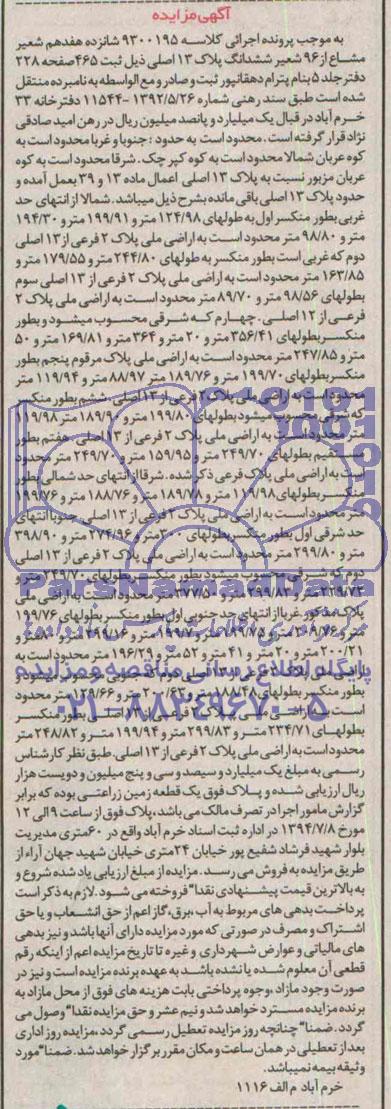 آگهی مزایده
به موجب پرونده اجرائی کلاسه ۹۳۰۰۱۹۵ شانزده هفدهم شعیر
مشاع از ۹۶ شعیر ششدانگ پلاک ۱۳ اصلی ذیل ثبت ۴۶۵ صفحه ۲۲۸
دفتر جلد ۵ بنام پترام دهقانپور ثبت و صادر و مع الواسطه به نامبرده منتقل
شده است طبق سند رهنی شماره ۱۳۹۲/۵/۲۶ -۱۱۵۴۴ دفترخانه ۳۳
خرم آباد در قبال یک میلیارد و پانصد میلیون ریال در رهن امید صادقی
نژاد قرار گرفته است. محدود است به حدود : جنوبا و غربا محدود است به
کوه عربان شمالا محدود است به کوه کپر چک. شرقا محدود است به کوه
عربان مزبور نسبت به پلاک ۱۳ اصلی اعمال ماده ۱۳ و ۳۹ بعمل آمده و
حدود پلاک ۱۳ اصلی باقی مانده بشرح ذیل میباشد. شمالا از انتهای حد
غربی بطور منکسر اول به طولهای ۱۲۴/۹۸ متر و ۱۹۹/۹۱ متر و ۱۹۴/۳۰
متر و ۹۸/۸۰ متر محدود است به اراضی ملی پلاک ۲ فرعی از ۱۳ اصلی
دوم که غربی است بطور منکسر به طولهای ۲۴۴/۸۰ متر و ۱۷۹/۵۵ متر و
۱۶۳/۸۵ متر محدود است به اراضی ملی پلاک ۲ فرعی از ۱۳ اصلی سوم
بطولهای ۹۸/۵۶ متر و ۸۹/۷۰ متر محدود است به اراضی ملی پلاک ۲
فرعی از ۱۲ اصلی. چهارم که شرقی محسوب میشود و بطور
منکسر بطولهای ۳۵۶/۴۱ متر و ۲۰ متر و ۳۶۴ متر و ۱۶۹/۸۱ متر و ۵۰
متر و ۲۴۷/۸۵ متر محدود است به اراضی ملی پلاک مرقوم پنجم بطور
منکسر بطولهای ۱۹۹/۷۰ متر و ۱۸۹/۷۶ متر ۸۸/۹۷ متر و ۱۱۹/۹۴ متر
محدود است به اراضی ملی پلاک ۲ فرعی از ۱۳ اصلی. ششم بطور منکسر
که شرقی محسوب میشود بطولهای ۱۹۹/۸۰ متر و ۱۸۹/۹۰ متر ۱۱۹/۹۸
متر محدود است به اراضی ملی پلاک ۲ فرعی از ۱۳ اصلی. هفتم بطور
مستقیم بطولهای ۲۴۹/۷۰ متر و ۱۵۹/۹۵ متر و ۲۴۹/۷۰ متر محدود
است به اراضی ملی پلاک فرعی ذکر شده. شرقا از انتهای حد شمالی بطور
منکسر بطولهای ۱۱۹/۹۸ متر و ۱۸۹/۷۸ متر و ۱۸۸/۷۶ متر و ۱۹۹/۷۶
متر محدود است به اراضی ملی پلاک ۲ فرعی از ۱۳ اصلی. جنوبا انتهای
حد شرقی اول بطور منکسر بطولهای ۳۰۰ متر و ۲۷۴/۹۶ متر و ۳۹۸/۹۰
متر و ۲۹۹/۸۰ متر محدود است به اراضی ملی پلاک ۲ فرعی از ۱۳ اصلی
دوم که شرقی محسوب میشود بطور منکسر بطولهای ۲۴۹/۷۰ متر و
۲۲۹/۷۳ متر و ۲۹۹/۸۳ متر و ۳۷۷/۵۰ متر محدود است به اراضی ملی
پلاک مذکور. غربا از انتهای حد جنوبی اول بطور منکسر بطولهای ۱۹۹/۷۶
۲۰۰/۲۱ متر و ۲۰ متر و ۴۱ متر و ۵۲ متر و ۱۹۶/۲۹ متر محدود است به
بطور منکسر بطولهای ۱۸۸/۴۸ متر و ۲۰۰/۶۲ متر و ۱۲۹/۶۶ متر محدود
است به اراضی ملی پلاک ۲ فرعی از ۱۳ اصلی بطور منکسر
بطولهای ۲۳۴/۷۱ متر و ۲۹۹/۸۳ متر و ۱۹۹/۹۴ متر و ۲۴۸/۸۲ متر
محدود است به اراضی ملی پلاک ۲ فرعی از ۱۳ اصلی. طبق نظر کارشناس
رسمی به مبلغ یک میلیارد و سیصد و سی و پنج میلیون و دویست هزار
ریال ارزیابی شده و پلاک فوق یک قطعه زمین زراعتی بوده که برابر
گزارش مامور اجرا در تصرف مالک می باشد، پلاک فوق از ساعت ۹ الی ۱۲
مورخ ۱۳۹۴/۷/۸ در اداره ثبت اسناد خرم آباد واقع در ۶۰متری مدیریت
بلوار شهید فرشاد شفیع پور خیابان ۲۴متری خیابان شهید جهان آراء از
طریق مزایده به فروش می رسد. مزایده از مبلغ ارزیابی یاد شده شروع و
به بالاترین قیمت پیشنهادی نقدا" فروخته می شود. لازم به ذکر است
پرداخت بدهی های مربوط به آب، برق، گاز اعم از حق انشعاب و یا حق
اشتراک و مصرف در صورتی که مورد مزایده دارای آنها باشد و نیز بدهی
های مالیاتی و عوارض شهرداری و غیره تا تاریخ مزایده اعم از اینکه رقم
قطعی آن معلوم شده یا نشده باشد به عهده برنده مزایده است و نیز در
صورت وجود مازاد، وجوه پرداختی بابت هزینه های فوق از محل مازاد به
برنده مزایده مسترد خواهد شد و نیم عشر و حق مزایده نقدا" وصول می
گردد. ضمنا" چنانچه روز مزایده تعطیل رسمی گردد، مزایده روز اداری
بعد از تعطیلی در همان ساعت و مکان مقرر برگزار خواهد شد. ضمنا" مورد
وثیقه بیمه نمیباشد.
خرم آباد م الف ۱۱۱۶
پایگاه اطلاع رسانی مناقصه و مزایده
۰۲۱-۸۸۳۴۹۶۷۰-۵